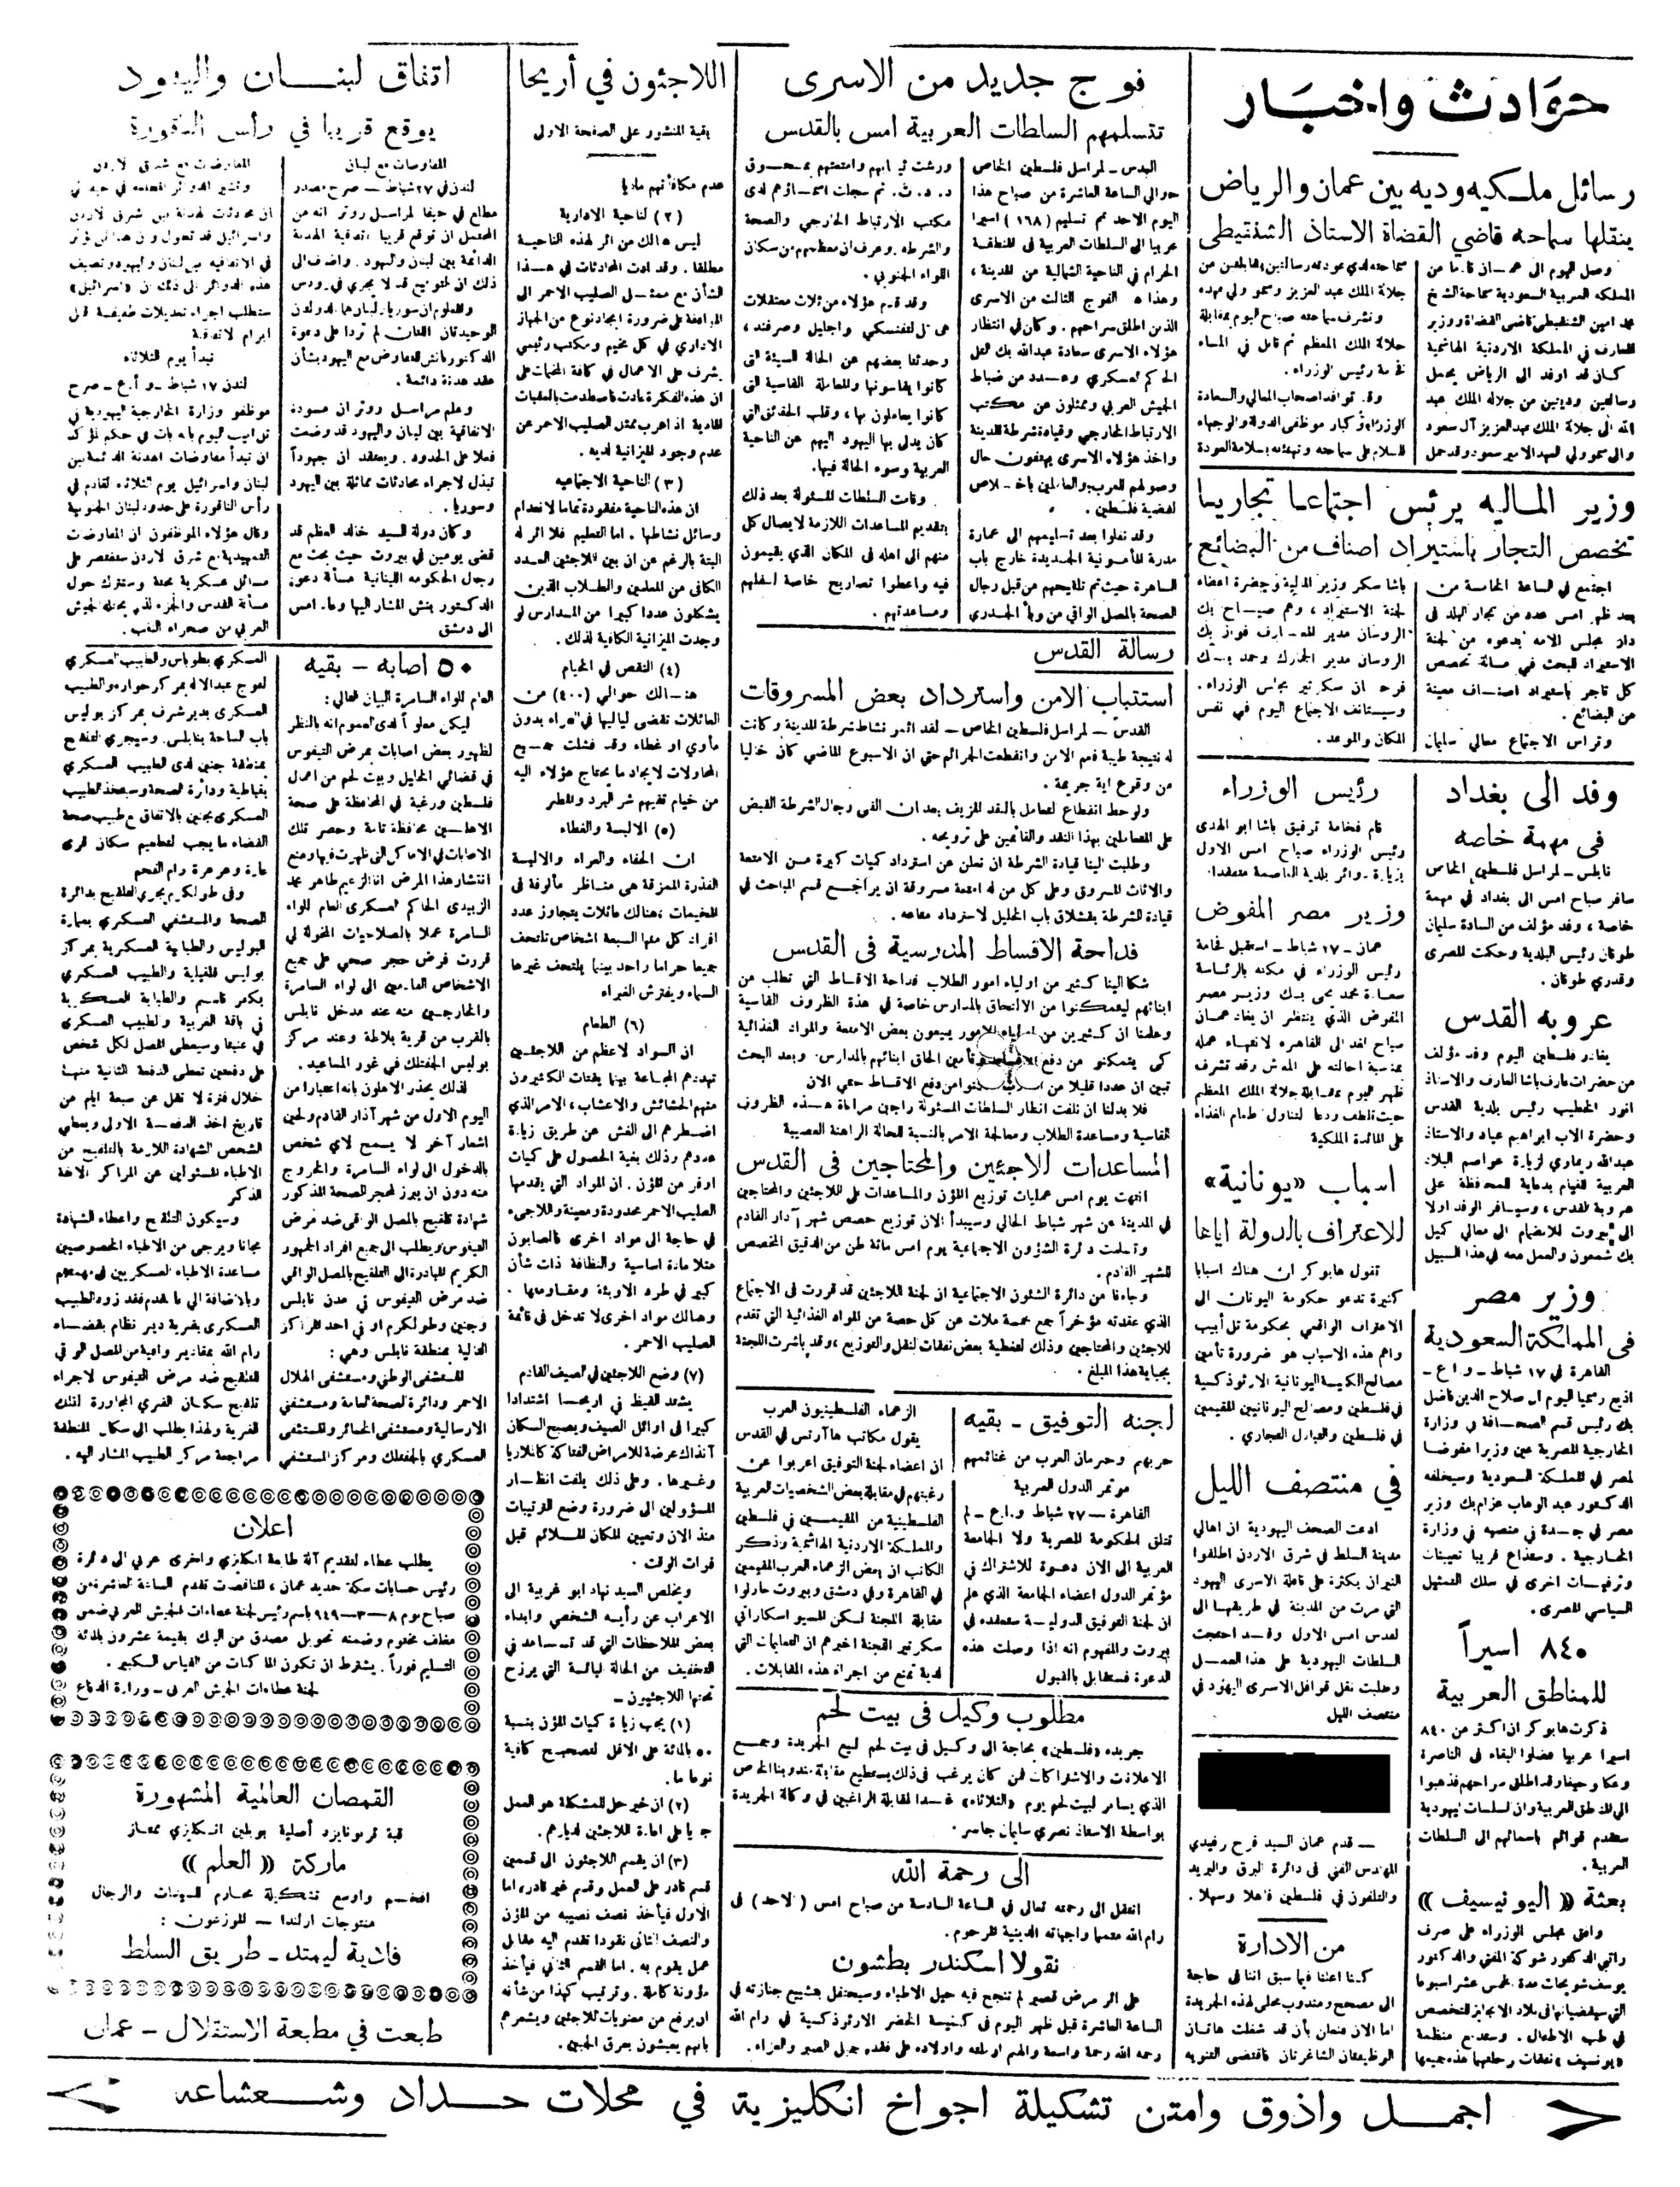 حوادث واخبار
رسائل ملكيه وديه بين عمان والرياض
ينقلها سماحه قاضي القضاة الاستاذ الشنقيطي
وصل اليوم الى عمان قادما من
المملكه العربية السعودية سماحة الشيخ
محمد امين الشنقيطي قاضى القضاة ووزير
المعارف في المملكة الاردنية الهاشمية
كان قد اوفد الى الرياض يحمل
رسالتين وديتين من جلاله الملك عبد
الله الى جلالة الملك عبد العزيز آل سعود
والى سمو ولي العهد الامير سعود وقد حمل
سماحته لدي عودته رسالتين هامتين من
جلالة الملك عبد العزيز وسمو ولي عهده
وتشرف سماحته صباح اليوم بمقابلة
جلالة الملك المعظم ثم قابل في المساء
فخامة رئيس الوزراء.
وقد توافد اصحاب المعالي والسعادة
الوزراء وكبار موظفى الدولة والوجهاء
للسلام على سماحته وتهنئته بسلامة العودة
وزير الماليه يرئس اجتماعا تجاريا
تخصص التجار باستيراد اصناف من البضائع
اجتمع في الساعة الخامسة من
بعد ظهر امس عدد من تجار البلد فى
دار مجلس الامه بدعوه من لجنة
الاستيراد للبحث في مسألة تخصص
كل تاجر باستيراد اصناف معينة
من البضائع.
وتراس الاجتماع معالي سليمان
باشا سكر وزير المالية وبحضرة اعضاء
لجنة الاستيراد، وهم صباح بك
الروسان مدير المعارف فواز بك
الروسان مدير الجمارك وحمد بك
فرحان سكرتير مجلس الوزراء.
وسيستانف الاجتماع اليوم في نفس
المكان والموعد.
وفد الى بغداد
فى مهمة خاصه
نابلس - لمراسل فلسطين الخاص
سافر صباح امس الى بغداد في مهمة
خاصة، وفد مؤلف من السادة سليمان
طوقان رئيس البلدية وحكمت المصرى
وقدري طوقان.
عروبه القدس
يغادر فلسطين اليوم وفد مؤلف
من حضرات عارف باشا العارف والاستاذ
انور الخطيب رئيس بلدية القدس
وحضرة الاب ابراهيم عياد والاستاذ
عبدالله ريماوي لزيارة عواصم البلاد
العربية للقيام بدعاية للمحافظة على
عروبة القدس، وسيسافر الوفد اولا
الى بيروت للانضمام الى معالي كميل
بك شمعون والعمل معه في هذا السبيل
وزير مصر
فى المملكة السعودية
القاهرة في ٢٧ شباط - و ا ع -
اذيع رسميا اليوم ان صلاح الدين فاضل
بك رئيس قسم الصحافة في وزارة
الخارجية المصرية عين وزيرا مفوضا
لمصر في المملكة السعودية وسيخلفه
الدكتور عبد الوهاب عزام بك وزير
مصر في جدة في منصبه في وزارة
الخارجية. وستذاع قريبا تعيينات
وترفيعات اخرى في سلك التمثيل
السياسي المصرى.
٨٤٠ اسيراً
للمناطق العربية
ذكرت هابوكر ان اكثر من ٨٤٠
اسيرا عربيا فضلوا البقاء فى الناصرة
وعكا وحيفا وقد اطلق سراحهم فذهبوا
الى المناطق العربية وان السلطات اليهودية
ستقدم قوائم باسمائهم الى السلطات
العربية.
بعثة «اليونيسيف»
وافق مجلس الوزراء على صرف
راتبي الدكتور شوكة المفتي والدكتور
يوسف شويحات مدة خمس عشر اسبوعا
التي سيقضيانها فى بلاد الانجليز للتخصص
في طب الاطفال. وستدفع منظمة
«يونسيف» نفقات رحلتهما هذه جميعها
رئيس الوزراء
قام فخامة توفيق باشا ابو الهدى
رئيس الوزراء صباح امس الاول
بزيارة دوائر بلدية العاصمة متفقدا.
وزير مصر المفوض
عمان - ٢٧ شباط - استقبل فخامة
رئيس الوزراء في مكتبه بالرئاسة
سعادة محمد يحي بك وزير مصر
المفوض الذي ينتظر ان يغادر عمان
صباح الغد الى القاهره لانتهاء عمله
بمناسبة احالته على المعاش وقد تشرف
ظهر اليوم بمقابلة جلالة الملك المعظم
حيث تلطف ودعاه لتناول طعام الغذاء
على المائدة الملكية
اسباب «يونانية»
للاعتراف بالدولة اياها
تقول هابوكر ان هناك اسبابا
كثيرة تدعو حكومة اليونان الى
الاعتراف الواقعي بحكومة تل أبيب
واهم هذه الاسباب هو ضرورة تأمين
مصالح الكنيسة اليونانية الارثوذكسية
في فلسطين ومصالح اليونانيين المقيمين
في فلسطين والتبادل التجاري.
في منتصف الليل
ادعت الصحف اليهودية ان اهالي
مدينة السلط في شرق الاردن اطلقوا
النيران بكثرة على قافلة الاسرى اليهود
التي مرت من المدينة في طريقها الى
القدس امس الاول وقد احتجت
السلطات اليهودية على هذا العمل
وطلبت نقل قوافل الاسرى اليهود في
منتصف الليل
— قدم عمان السيد فرح رفيدي
المهندس الفني فى دائرة البرق والبريد
والتلفون في فلسطين فاهلا وسهلا.
من الادارة
كنا اعلنا فيما سبق اننا في حاجة
الى مصحح ومندوب محلى لهذه الجريدة
اما الان فنعلن بأن قد شغلت هاتان
الوظيفتان الشاغرتان فاقتضى التنويه
فوج جديد من الاسرى
تتسلمهم السلطات العربية امس بالقدس
القدس - لمراسل فلسطين الخاص
حوالي الساعة العاشرة من صباح هذا
اليوم الاحد تم تسليم (١٦٨) اسيرا
عربيا الى السلطات العربية في المنطقة
الحرام في الناحية الشمالية من المدينة،
وهذا هو الفوج الثالث من الاسرى
الذين اطلق سراحهم. وكان في انتظار
هؤلاء الاسرى سعادة عبدالله بك التل
الحاكم العسكري وعدد من ضباط
الجيش العربي وممثلون عن مكتب
الارتباط الخارجي وقيادة شرطة المدينة
واخذ هؤلاء الاسرى يهتفون حال
وصولهم للعرب والعاملين باخلاص
لقضية فلسطين.
وقد نقلوا بعد تسليمهم الى عمارة
مدرسة المأمونية الجديدة خارج باب
الساهرة حيث تم تلقيحهم من قبل رجال
الصحة بالمصل الواقي من وبأ الجدري
ورشت ثيابهم وامتعتهم بمسحوق
د. د. ث. ثم سجلت اسماؤهم لدى
مكتب الارتباط الخارجي والصحة
والشرطه. وعرف ان معظمهم من سكان
اللواء الجنوبي.
وقد قدم هؤلاء من ثلاث معتقلات
هى تل لتفنسكي واجليل وصرفند،
وحدثنا بعضهم عن الحالة السيئة التى
كانوا يقاسونها والمعاملة القاسية التى
كانوا يعاملون بها، وقلب الحقائق التي
كان يدلي بها اليهود اليهم عن الناحية
العربية وسوء الحالة فيها.
وقامت السلطات المسئولة بعد ذلك
بتقديم المساعدات اللازمة لايصال كل
منهم الى اهله فى المكان الذي يقيمون
فيه واعطوا تصاريح خاصة لنقلهم
ومساعدتهم.
رسالة القدس
استتباب الامن واسترداد بعض المسروقات
القدس - لمراسل فلسطين الخاص - لقد اثمر نشاط شرطة المدينة وكانت
له نتيجة طيبة فعم الامن وانقطعت الجرائم حتى ان الاسبوع الماضي كان خاليا
من وقوع اية جريمة.
ولوحظ انقطاع التعامل بالنقد المزيف بعد ان القى رجال الشرطة القبض
على المتعاملين بهذا النقد والقائمين على ترويجه.
وطلبت الينا قيادة الشرطة ان نعلن عن استرداد كميات كبيرة من الامتعة
والاثاث المسروق وعلى كل من له امتعة مسروقة ان يراجع قسم المباحث في
قيادة الشرطة بقشلاق باب الخليل لاسترداد متاعه.
فداحة الاقساط المدرسية فى القدس
شكا الينا كثير من اولياء امور الطلاب فداحة الاقساط التي تطلب من
ابنائهم ليتمكنوا من الالتحاق بالمدارس خاصة في هذة الظروف القاسية
وعلمنا ان كثيرين من اولياء الامور يبيعون بعض الامتعة والمواد الغذائية
كى يتمكنو من دفع الاقساط وتأمين الحاق ابنائهم بالمدارس. وبعد البحث
تبين ان عددا قليلا من تمكنوا من دفع الاقساط حتى الان
فلا بد لنا ان نلفت انظار السلطات المسئولة راجين مراعاة هذه الظروف
القاسية ومساعدة الطلاب ومعالجة الامر بالنسبة للحالة الراهنة العصيبة
المساعدات للاجئين والمحتاجين فى القدس
انتهت يوم امس عمليات توزيع المؤن والمساعدات على اللاجئين والمحتاجين
في المدينة عن شهر شباط الحالي وسيبدأ الان توزيع حصص شهر آدار القادم
وتسلمت دائرة الشؤون الاجتماعية يوم امس مائة طن من الدقيق المخصص
للشهر القادم.
وجاءنا من دائرة الشئون الاجتماعية ان لجنة اللاجئين قد قررت فى الاجتماع
الذي عقدته مؤخراً جمع خمسة ملات عن كل حصة من المواد الغذائية التي تقدم
للاجئين والمحتاجين وذلك لتغطية بعض نفقات النقل والتوزيع، وقد باشرت اللجنة
بجباية هذا المبلغ.
لجنه التوفيق - بقيه
حربهم وحرمان العرب من غنائمهم
موتمر الدول العربية
القاهرة — ٢٧ شباط و.ا.ع - لم
تتلق الحكومة المصرية ولا الجامعة
العربية الى الان دعوة للاشتراك في
مؤتمر الدول اعضاء الجامعة الذي علم
ان لجنة التوفيق الدولية ستعقده في
بيروت والمفهوم انه اذا وصلت هذه
الدعوة فستقابل بالقبول
الزعماء الفلسطينيون العرب
يقول مكاتب هاآرتس في القدس
ان اعضاء لجنة التوفيق اعربوا عن
رغبتهم في مقابلة بعض الشخصيات العربية
الفلسطينية من المقيمين في فلسطين
والمملكة الاردنية الهاشمية وذكر
الكاتب ان بعض الزعماء العرب المقيمين
في القاهرة وفي دمشق وبيروت حاولوا
مقابلة اللجنة لكن المسيو اسكاراتي
سكرتير اللجنة اخبرهم ان التعليمات التي
لديه تمنع من اجراء هذه المقابلات.
مطلوب وكيل فى بيت لحم
جريده «فلسطين» بحاجة الى وكيل فى بيت لحم لبيع الجريدة وجمع
الاعلانات والاشتراكات فمن كان يرغب فى ذلك يستطيع مقابلة مندوبنا الخاص
الذي يسافر لبيت لحم يوم «الثلاثاء» غدا لمقابلة الراغبين في وكالة الجريدة
بواسطة الاستاذ نصري سليمان جاسر.
الى رحمة الله
انتقل الى رحمته تعالى في الساعة السادسة من صباح امس (الاحد) فى
رام الله متمما واجباته الدينية المرحوم.
نقولا اسكندر بطشون
على اثر مرض قصير لم تنجح فيه حيل الاطباء وسيحتفل بتشييع جنازته في
الساعة العاشرة قبل ظهر اليوم فى كنيسة الخضر الارثوذكسية في رام الله
رحمه الله رحمة واسعة والهم ارملته واولاده على فقده جميل الصبر والعزاء.
اللاجئون في أريحا
بقية المنشور على الصفحة الاولى
عدم مكافأتهم ماديا
(٢) لناحية الادارية
ليس هنالك من اثر لهذه الناحية
مطلقا. وقد ادت المحادثات في هذا
الشأن مع ممثلي الصليب الاحمر الى
الموافقة على ضرورة ايجاد نوع من الجهاز
الاداري في كل مخيم ومكتب رئيسي
يشرف على الاعمال في كافة المخيمات على
ان هذه الفكرة عادت فاصطدمت بالعقبات
المادية اذ اعرب ممثل الصليب الاحمر عن
عدم وجود الميزانية لديه.
(٣) الناحية الاجتماعيه
ان هذه الناحية مفقودة تماما لانعدام
وسائل نشاطها. اما التعليم فلا اثر له
البتة بالرغم عن ان بين اللاجئين العدد
الكافى من المعلمين والطلاب الذين
يشكلون عددا كبيرا من المدارس لو
وجدت الميزانية الكافية لذلك.
(٤) النقص في الخيام
هنالك حوالي (٤٠٠) من
العائلات تقضى لياليها في العراء بدون
مأوي او غطاء وقد فشلت جميع
المحاولات لايجاد ما يحتاج هؤلاء اليه
من خيام تقيهم شر البرد والمطر
(٥) الالبسة والغطاء
ان الحفاء والعراء والالبسة
القذرة الممزقة هى مناظر مألوفة فى
المخيمات، هنالك عائلات يتجاوز عدد
افراد كل منها السبعة اشخاص تلتحف
جميعا حراما واحد بينما يلتحف غيرها
السماء ويفترش الغبراء
(٦) الطعام
ان السواد الاعظم من اللاجئين
تهددهم المجاعة بينما يقتات الكثيرون
منهم الحشائش والاعشاب، الامر الذي
اضطرهم الى الغش عن طريق زيادة
عددهم وذلك بغية الحصول على كيات
اوفر من المؤن. ان المواد التي يقدمها
الصليب الاحمر محدودة ومعينة واللاجىء
في حاجة الى مواد اخرى فالصابون
مثلا مادة اساسية والنظافة ذات شأن
كبير في طرد الاوبئة ومقاومتها.
وهنالك مواد اخرى لا تدخل فى قائمة
الصليب الاحمر.
(٧) وضع اللاجئين في الصيف القادم
يشتد القيظ في اريحا اشتدادا
كبيرا فى اوائل الصيف ويصبح السكان
آنذاك عرضة للامراض الفتاكة كالملاريا
وغيرها. وعلى ذلك يلفت انظار
المسؤولين الى ضرورة وضع الترتيبات
منذ الان وتعيين المكان الملائم قبل
فوات الوقت.
ويخلص السيد نهاد ابو غربية الى
الاعراب عن رأيه الشخصي وابداء
بعض الملاحظات التي قد تساعد في
التخفيف من الحالة اليائسة التي يرزح
تحتها اللاجئون -
(١) يجب زيادة كيات المؤن بنسبة
٥٠ بالمائة على الاقل لتصبح كافية
نوعا ما.
(٢) ان خير حل للمشكلة هو العمل
جديا على اعادة اللاجئين لديارهم.
(٣) ان يقسم اللاجئون الى قسمين
قسم قادر على العمل وقسم غير قادر، اما
الاول فيأخذ نصف نصيبه من المؤن
والنصف الثانى نقودا تقدم اليه مقابل
عمل يقوم به. اما القسم الثاني فيأخذ
مؤونة كاملة. وترتيب كهذا من شأنه
ان يرفع من معنويات اللاجئين ويشعرهم
بانهم يعيشون بعرق الجبين.
اتفاق لبنان واليهود
يوقع قريبا في رأس الناقورة
المفاوضات مع لبنان
لندن في ٢٧ شباط - صرح مصدر
مطلع في حيفا لمراسل روتر انه من
المحتمل ان توقع قريبا اتفاقية الهدنة
الدائمة بين لبنان واليهود. واضاف الى
ذلك ان التوقيع قد لا يجري في رودس
والمعلوم ان سوريا ولبنان هما الدولتان
الوحيدتان اللتان لم تردا على دعوة
الدكتور بانش للتفاوض مع اليهود بشأن
عقد هدنة دائمة.
وعلم مراسل روتر ان مسودة
الاتفاقية بين لبنان واليهود قد وضعت
فعلا على الحدود. ويعتقد ان جهوداً
تبذل لاجراء محادثات مماثلة بين اليهود
وسوريا.
وكان دولة السيد خالد العظم قد
قضى يومين في بيروت حيث بحث مع
رجال الحكومه اللبنانية مسألة دعوة
الدكتور بنش المشار اليها وعاد امس
الى دمشق
المفاوضات مع شرق الاردن
وتشير الدوائر المطلعه في حيفا الى
ان محادثات الهدنة بين شرق الاردن
واسرائيل قد تطول وان هذا لن يؤثر
في الاتفاقيه بين لبنان واليهود وتضيف
هذه الدوائر الى ذلك ان «اسرائيل»
ستطلب اجراء تعديلات طفيفة قبل
ابرام الاتفاقية
تبدأ يوم الثلاثاء
لندن ٢٧ شباط - و أ.ع - صرح
موظفو وزارة الخارجية اليهودية في
تل ابيب اليوم بانه بات في حكم المؤكد
ان تبدأ مفاوضات الهدنة الدائمة بين
لبنان واسرائيل يوم الثلاثاء القادم في
رأس الناقورة على حدود لبنان الجنوبية
وقال هؤلاء الموظفون ان المفاوضات
التمهيدية مع شرق الاردن ستقتصر على
مسائل عسكرية بحتة وستترك حول
مسألة القدس والجزء الذي يحتله الجيش
العربي من صحراء النقب.
٥٠ اصابه - بقيه
العام للواء السامرة البيان التالي:
ليكن معلوماً لدى العموم انه بالنظر
لظهور بعض اصابات بمرض التيفوس
في قضائي الخليل وبيت لحم من اعمال
فلسطين ورغبة في المحافظة على صحة
الاهلين محافظة تامة وحصر تلك
الاصابات في الاماكن التى ظهرت فيها ومنع
انتشار هذا المرض انا الزعيم طاهر محمد
الزبيدي الحاكم العسكرى العام للواء
السامرة عملا بالصلاحيات المخولة لي
قررت فرض حجر صحي على جميع
الاشخاص القادمين الى لواء السامرة
والخارجين منه عند مدخل نابلس
بالقرب من قرية بلاطة وعند مركز
بوليس الجفتلك في غور المساعيد.
لذلك يحذر الاهلون بانه اعتبارا من
اليوم الاول من شهر آذار القادم ولحين
اشعار آخر لا يسمح لاي شخص
بالدخول الى لواء السامرة والخروج
منه دون ان يبرز لمحجر الصحة المذكور
شهادة تلقيح بالمصل الواقى ضد مرض
التيفوس ويطلب الى جميع افراد الجمهور
الكريم المبادرة الى التلقيح بالمصل الواقي
ضد مرض التيفوس في مدن نابلس
وجنين وطولكرم او في احد المراكز
التالية بمنطقة نابلس وهي:
المستشفى الوطني ومستشفى الهلال
الاحمر ودائرة الصحة العامة ومستشفي
الارسالية ومستشفى الخسائر والمستشفى
العسكري بالجفتلك ومركز المستشفي
العسكري بطوباس والطبيب العسكري
لفوج عبدالاله بمركز حواره والطبيب
العسكرى بدير شرف بمركز بوليس
باب الساحة بنابلس. وسيجري التلقيح
بمنطقة جنين لدى الطبيب العسكري
بقباطية ودائرة الصحة وسيتخذ الطبيب
العسكري بجنين بالاتفاق مع طبيب صحة
القضاء ما يجب لتطعيم سكان قرى
عارة وعرعرة وام الفحم
وفى طولكرم يجري التلقيح بدائرة
الصحة والمستشفي العسكري بعمارة
البوليس والطبابة العسكرية بمركز
بوليس قلقيلية والطبيب العسكري
بكفر قاسم والطبابة العسكرية
في باقة الغربية والطبيب العسكرى
في عنبتا وسيعطى المصل لكل شخص
على دفعتين تعطى الدفعة الثانية منها
خلال فترة لا تقل عن سبعة ايام من
تاريخ اخذ الدفعة الاولى ويعطي
الشخص الشهادة اللازمة بالتلقيح من
الاطباء المسئولين عن المراكز الانفة
الذكر
وسيكون التلقيح واعطاء الشهادة
مجانا ويرجى من الاطباء الخصوصيين
مساعدة الاطباء العسكريين في مهمتهم
وبالاضافة الى ما تقدم فقد زود الطبيب
العسكرى بقرية دير نظام بقضاء
رام الله بمقادير وافية من المصل الواقي
للتلقيح ضد مرض التيفوس لاجراء
تلقيح سكان القرى المجاورة لتلك
القرية ولهذا يطلب الى سكان المنطقة
مراجعة مركز الطبيب المشار اليه.
اعلان
يطلب عطاء لتقديم آلة طابعة انكليزي واخرى عربي الى دائرة
رئيس حسابات سكة حديد عمان، المناقصات تقدم الساعة العاشرة من
صباح يوم ٨-٣-٩٤٩ باسم رئيس لجنة عطاءات الجيش العربي ضمن
مغلف مختوم وضمنه تحويل مصدق من البنك بقيمة عشرون بالمائة
التسليم فوراً. يشترط ان تكون الماكنات من القياس الكبير.
لجنة عطاءات الجيش العربي - وزارة الدفاع
القمصان العالمية المشهورة
قبة ترونايزد أصلية بوبلين انكليزي ممتاز
ماركة «العلم»
افخم واوسع تشكيلة محارم للسيدات والرجال
منتوجات ارلندا — الموزعون:
فادية ليمتد - طريق السلط
طبعت في مطبعة الاستقلال - عمان
اجمل واذوق وامتن تشكيلة اجواخ انكليزية في محلات حداد وشعشاعه